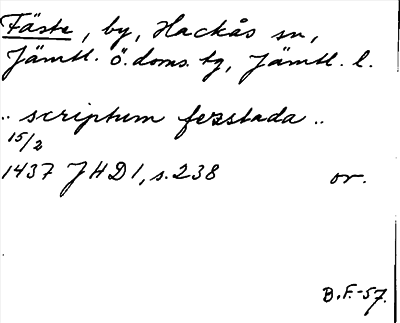 Fäste, by, Hackås sn,
Jämtl. ö. doms. tg, Jämtl. l.
.. scriptum fersstada ..
15/2
1437 JHD 1, s. 238 or.
B.F.-57.